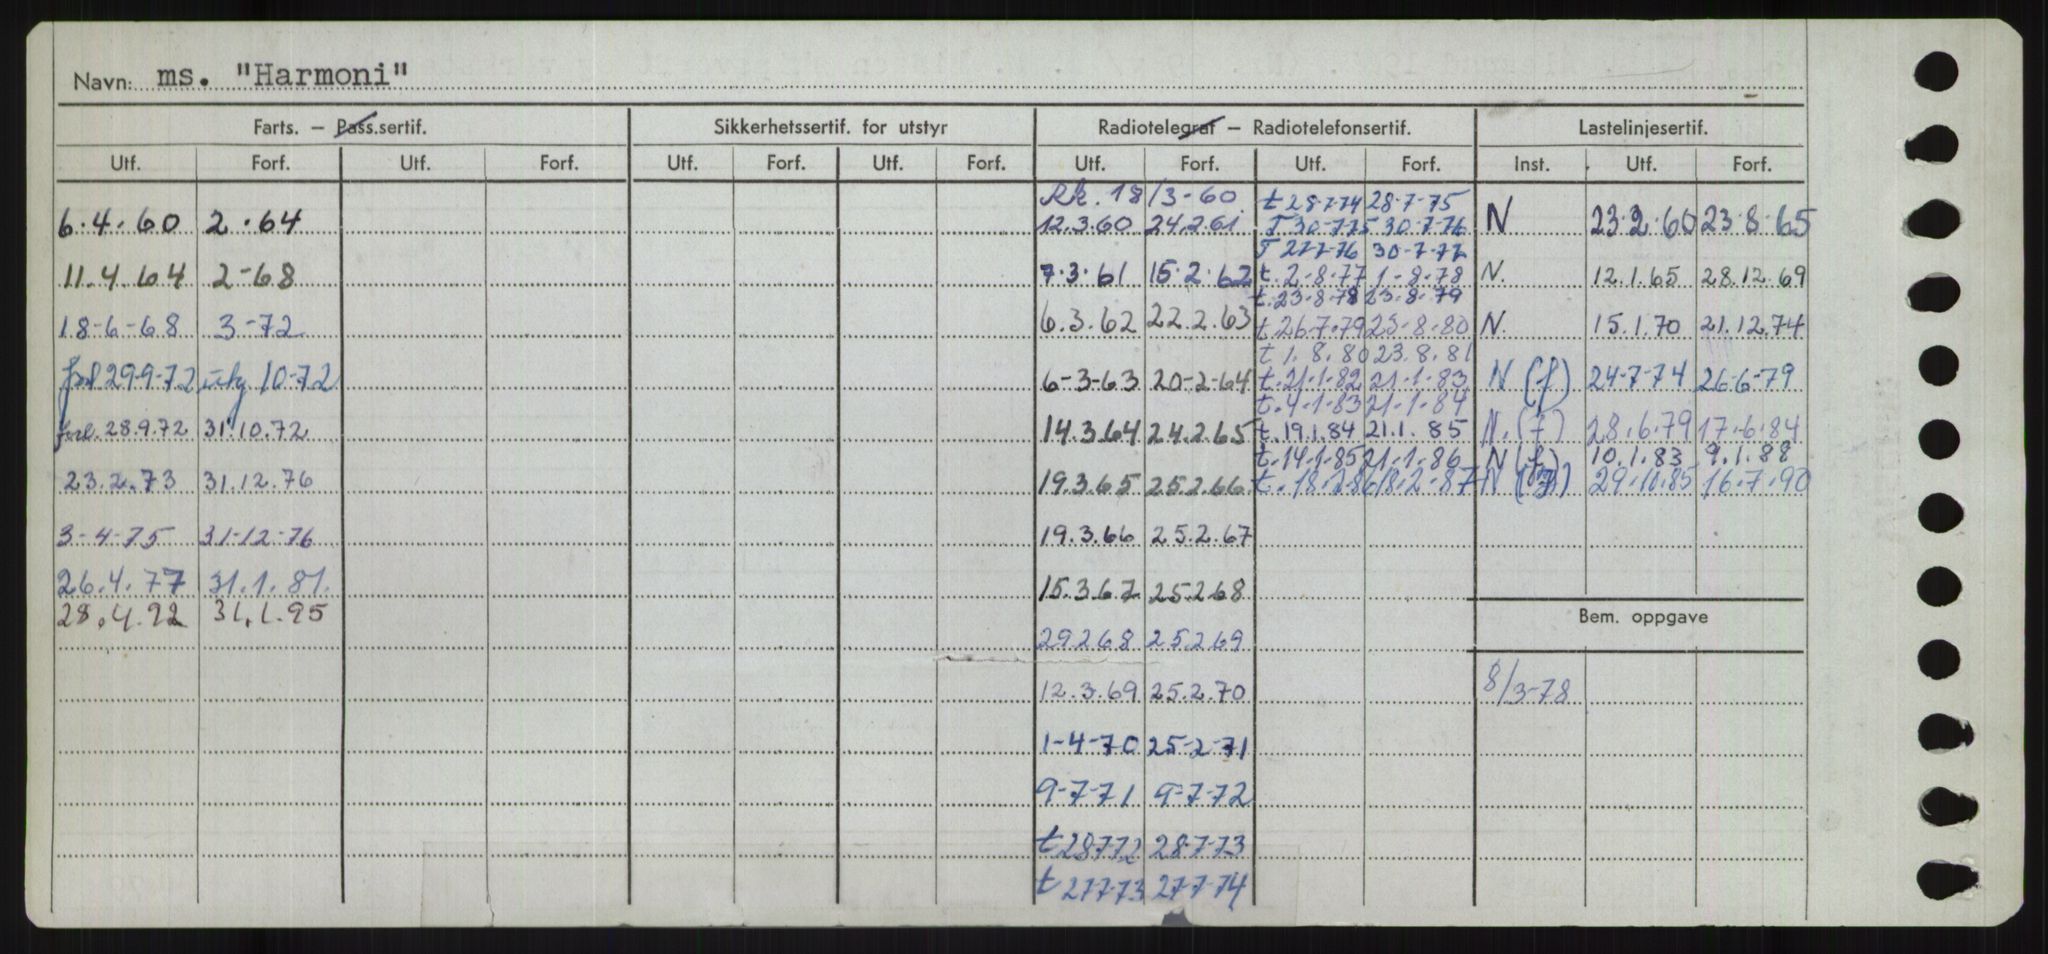 Navn: ms. "Harmoni"
Farts. – Pass.sertif. Sikkerhetssertif. for utstyr Radiotelegraf – Radiotelefonsertif. Lastelinjesertif.
Utf. Forf. Utf. Forf. Utf. Forf. Utf. Forf. Utf. Forf. Utf. Forf. Inst. Utf. Forf.
Rk. 18/3-60 t 28-7-74 28-7-75
6.4.60 2.64 12.3.60 24.2.61 T 30-7-75 30-7-76 N 23.2.60 23.8.65
T 27-7-76 30-7-77
11.4.64 2-68 7.3.61 15.2.62 t. 2-8-77 1-8-78 N. 12.1.65 28.12.69
t. 23-8-78 23-8-79
18-6-68 3-72 6.3.62 22.2.63 t. 26.7.79 23-8-80 N. 15.1.70 21.12.74
t 1.8.80 23.8.81
forl 29-9-72 utg 10-72 6-3-63 20-2-64 t. 21-1-82 21-1-83 N (f) 24-7-74 26-6-79
t. 4-1-83 21-1-84
forl. 28.9.72 31.10.72 14.3.64 24.2.65 t. 19.1.84 21.1.85 N. (f) 28.6.79 17.6.84
t. 14.1.85 21.1.86 N (f) 10.1.83 9.1.88
23.2.73 31.12.76 19.3.65 25.2.66 t. 18.2.86 18.2.87 N (f) 29.10.85 16.7.90
3-4-75 31-12-76 19.3.66 25.2.67
26.4.77 31.1.81. 15.3.67 25.2.68
28.4.92 31.1.95 Bem. oppgave
29.2.68 25.2.69
12.3.69 25.2.70 8/3-78
1-4-70 25-2-71
9-7-71 9-7-72
t 28.7.72 28-7-73
t 27.7.73 27-7-74